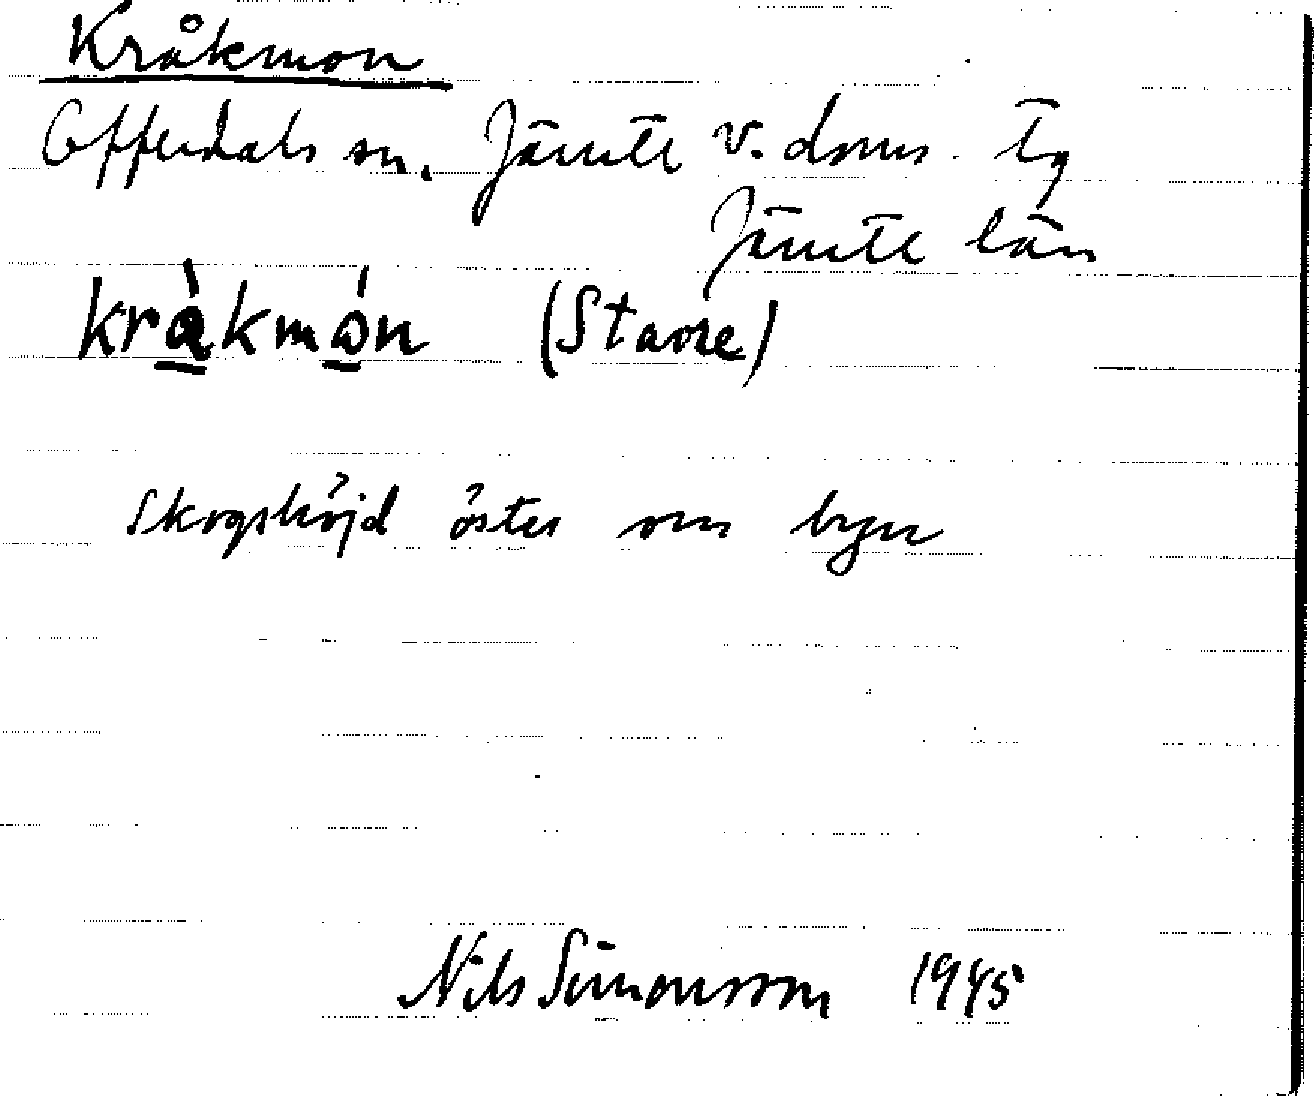 Kråkmon
Offerdals sn. Jämtl v. doms. tg
Jämtl län
kràkmón (Stavre)
Skogshöjd öster om byn
Nils Simonsson 1945